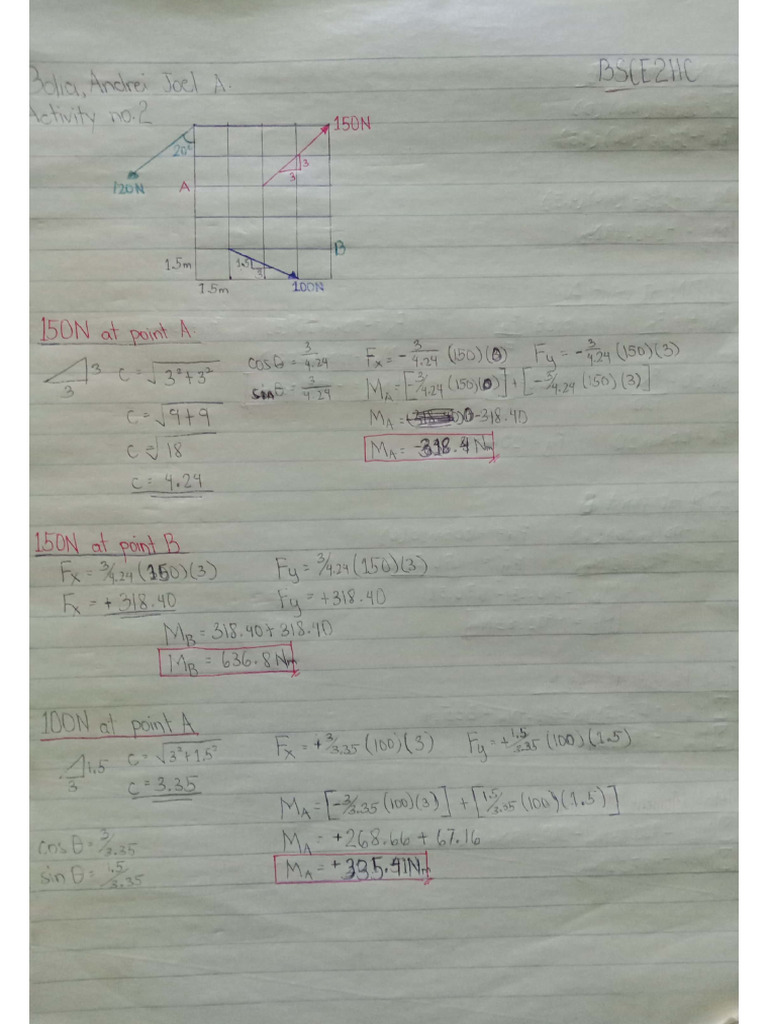 Bolia, Andrei Joel A.
BSCE2HC
Activity no.2
150N
20°
3
3
120N
A
B
1.5m
1.5
3
1.5m
100N
150N at point A
3
3
C = √3²+3²
C = √9+9
C = √18
C = 4.24
cosθ = 3/4.24
sinθ = 3/4.24
Fx = -3/4.24 (150)(0)
Fy = -3/4.24 (150)(3)
MA = [-3/4.24 (150)(0)] + [-3/4.24 (150)(3)]
MA = 0 -318.40
MA = -318.4 Nm
150N at point B
Fx = 3/4.24 (150)(3)
Fy = 3/4.24 (150)(3)
Fx = +318.40
Fy = +318.40
MB = 318.40+318.40
MB = 636.8 Nm
100N at point A
1.5
3
C = √3²+1.5²
C = 3.35
cosθ = 3/3.35
sinθ = 1.5/3.35
Fx = +3/3.35 (100)(3)
Fy = +1.5/3.35 (100)(1.5)
MA = [-3/3.35 (100)(3)] + [1.5/3.35 (100)(1.5)]
MA = +268.66 + 67.16
MA = +335.41Nm